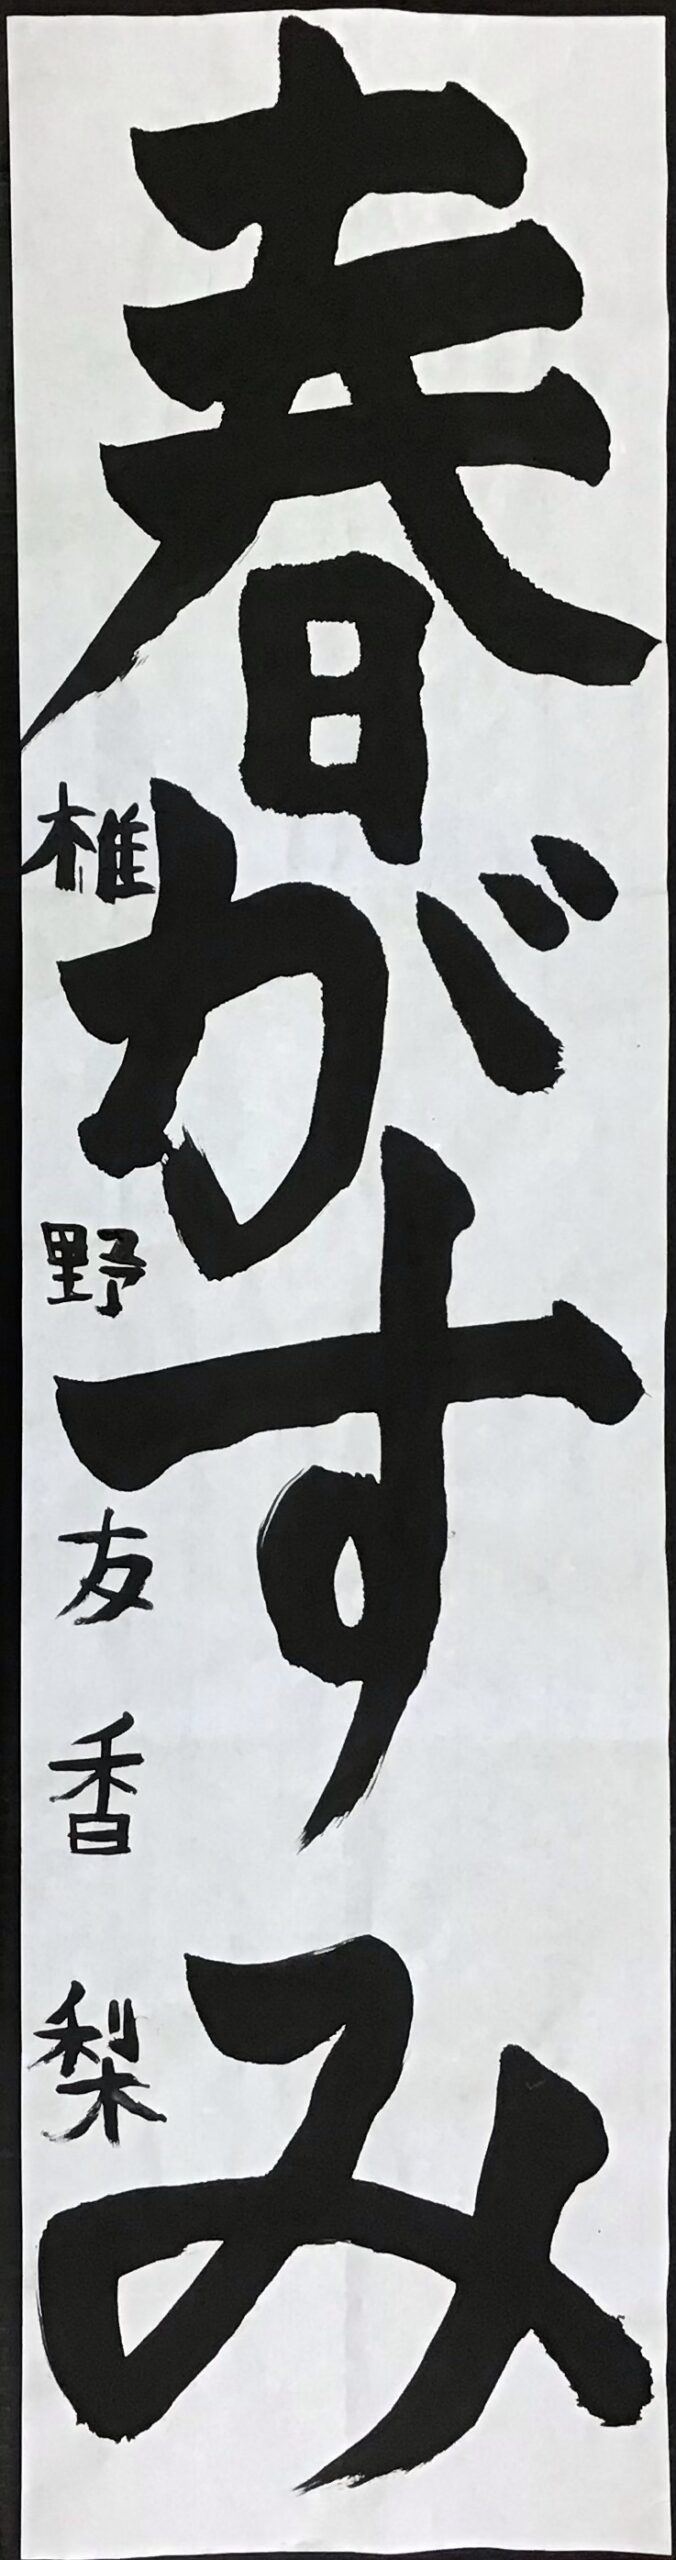 春がすみ
椎野友香梨